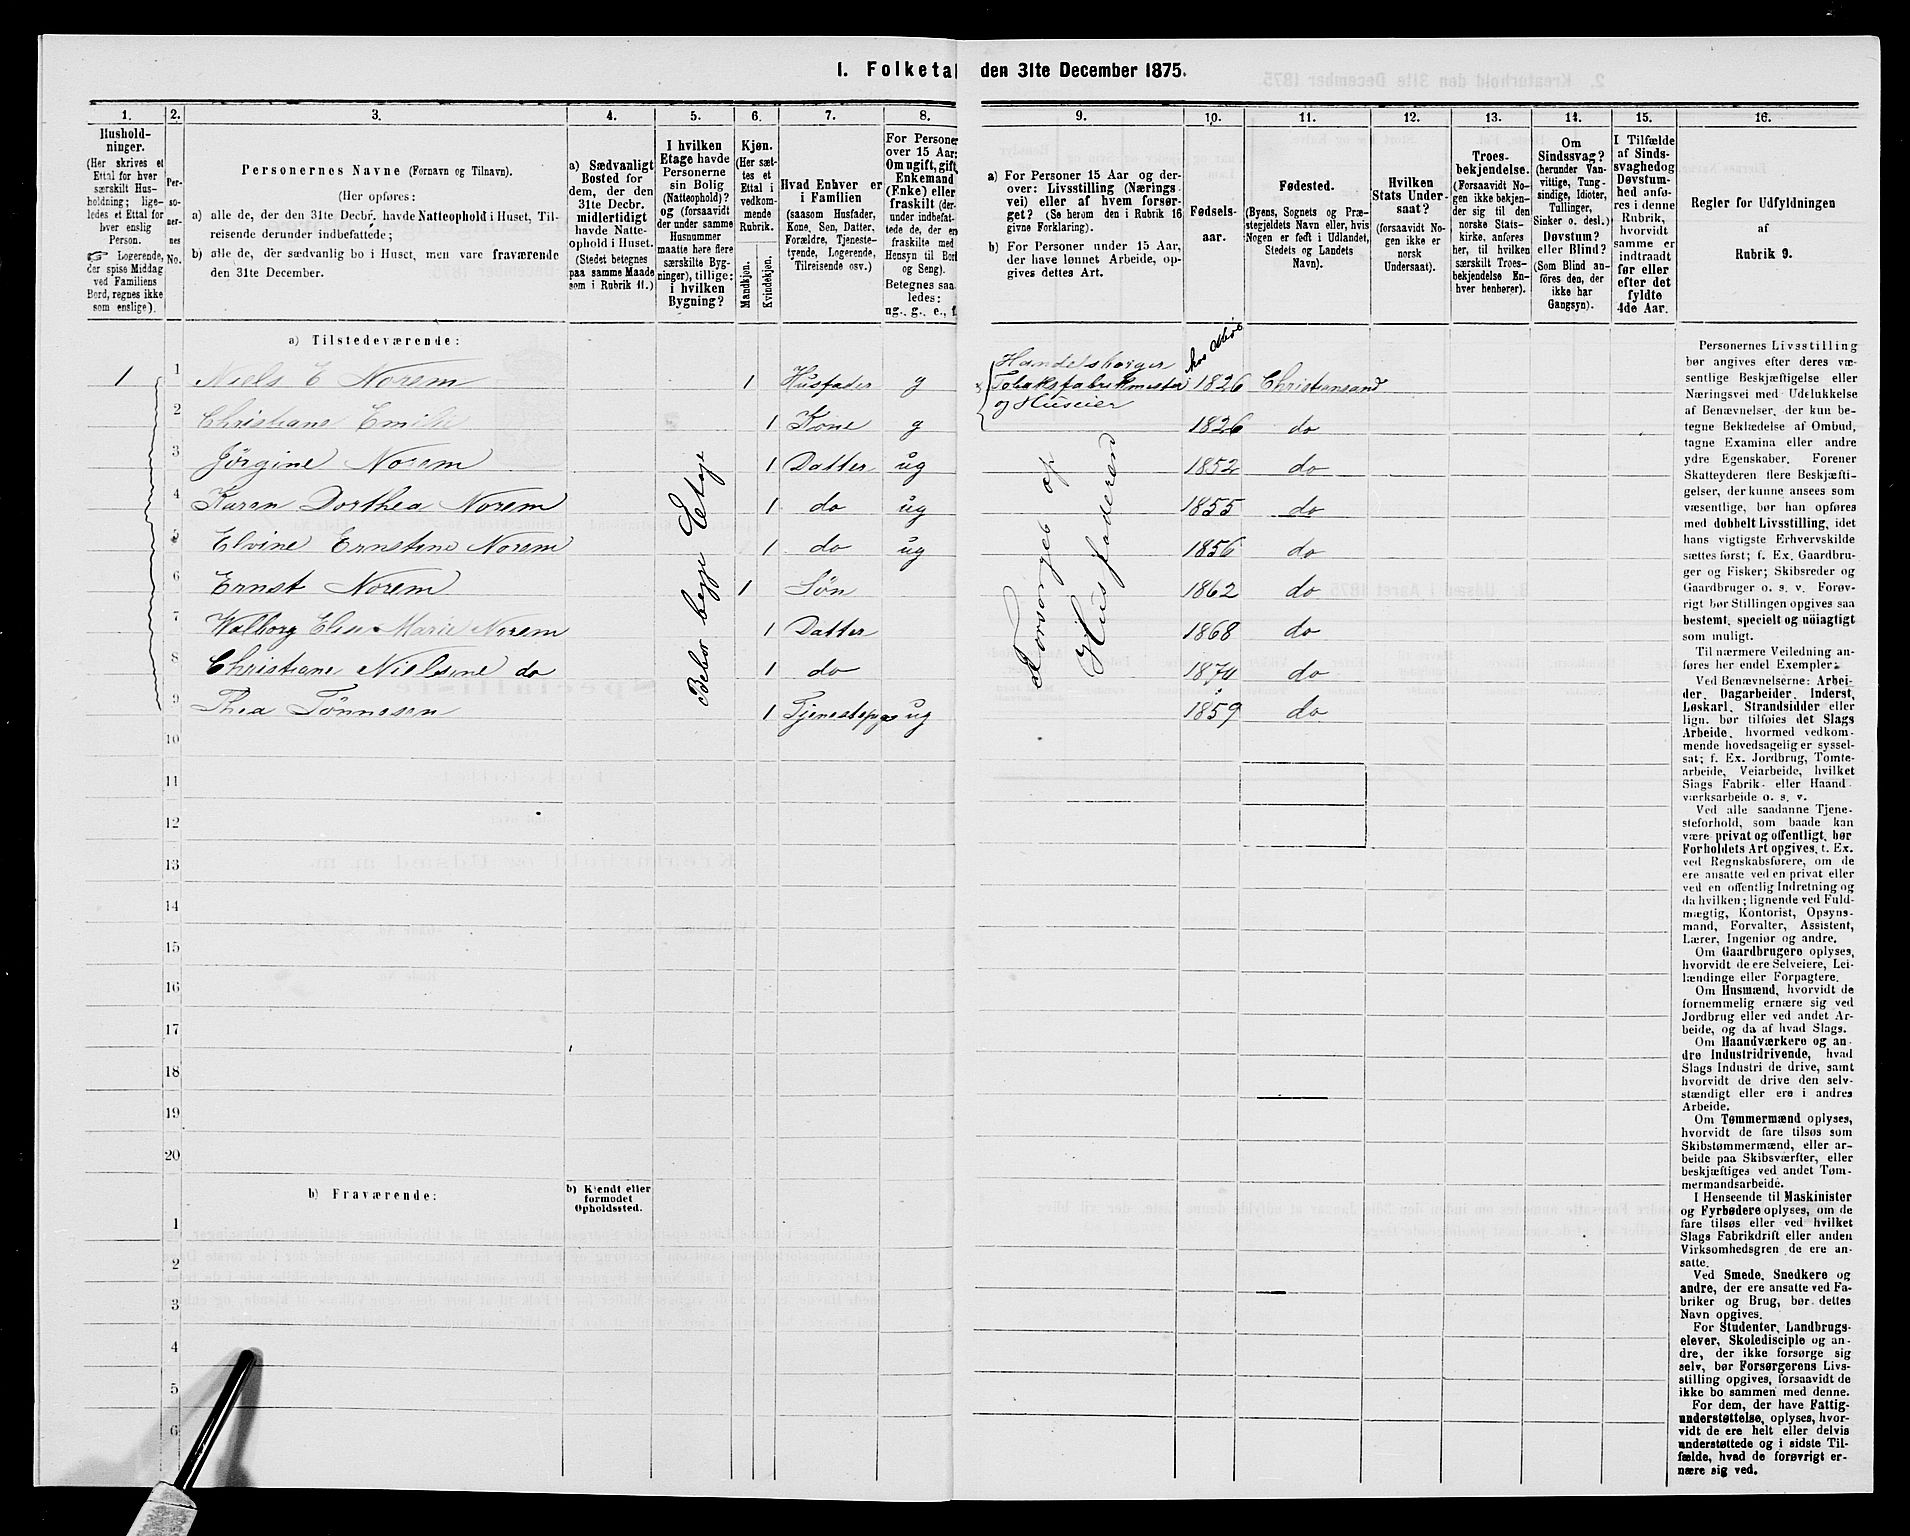 1. Folketal den 31te December 1875.
1.
Hushold-
ninger.
(Her skrives et
Ettal for hver
særskilt Hus-
holdning; lige-
ledes et Ettal for
hver enslig
Person.
☞ Logerende,
der spise Middag
ved Familiens
Bord, regnes ikke
som enslige).
2.
Per-
so-
ner-
nes
No.
3.
Personernes Navne (Fornavn og Tilnavn).
(Her opføres:
a) alle de, der den 31te Decbr. havde Natteophold i Huset, Til-
reisende derunder indbefattede;
b) alle de, der sædvanlig bo i Huset, men vare fraværende
den 31te December.
4.
a) Sædvanligt
Bosted for
dem, der den
31te Decbr.
midlertidigt
havde Natte-
ophold i Huset.
(Stedet betegnes
paa samme Maade
som i Rubrik 11.)
5.
I hvilken
Etage havde
Personerne
sin Bolig
(Natteophold)?
og (forsaavidt
der under samme
Husnummer
maatte høre flere
særskilte Byg-
ninger), tillige:
i hvilken
Bygning?
6.
Kjøn.
(Her sæt-
tes et
Ettal i
vedkom-
mende
Rubrik.
Mandkjøn.
Kvindekjøn.
7.
Hvad Enhver er
i Familien
(saasom Husfader,
Kone, Søn, Datter,
Forældre, Tjeneste-
tyende, Logerende,
Tilreisende osv.)
8.
For Personer
over 15 Aar:
Om ugift, gift,
Enkemand
(Enke) eller
fraskilt (der-
under indbefat-
tede de, der ere
fraskilte med
Hensyn til Bord
og Seng).
Betegnes saa-
ledes:
ug., g., e., f.
9.
a) For Personer 15 Aar og der-
over: Livsstilling (Nærings-
vei) eller af hvem forsør-
get? (Se herom den i Rubrik 16
givne Forklaring).
b) For Personer under 15 Aar,
der have lønnet Arbeide, op-
gives dettes Art.
10.
Fødsels-
aar.
11.
Fødested.
(Byens, Sognets og Præ-
stegjeldets Navn eller, hvis
Nogen er født i Udlandet,
Stedets og Landets
Navn).
12.
Hvilken
Stats Under-
saat?
(forsaavidt No-
gen ikke er
norsk
Undersaat).
13.
Troes-
bekjendelse.
(Forsaavidt No-
gen ikke bekjen-
der sig til den
norske Stats-
kirke, anføres
her, til hvilken
særskilt Troes-
bekjendelse En-
hver henhører).
14.
Om
Sindssvag?
(herunder Van-
vittige, Tung-
sindige, Idioter,
Tullinger,
Sinker o. desl.)
Døvstum?
eller Blind?
(Som Blind an-
føres den, der
ikke har
Gangsyn).
15.
I Tilfælde
af Sinds-
svaghed og
Døvstum-
hed anfø-
res i denne
Rubrik,
hvorvidt
samme er
indtraadt
før eller
efter det
fyldte
4de Aar.
16.
Regler for Udfyldningen
af
Rubrik 9.
a) Tilstedeværende:
Handelsborger
1 1 Niels E Norem 1 Husfader g Tobaksfabrikmester 1826 Christiansand
og Huseier
2 Christiane Emilie 1 Kone g 1826 do
3 Jörgine Norem 1 Datter ug 1852 do
4 Karen Dorthea Norem 1 do ug 1855 do
5 Elvine Ernstine Norem 1 do ug 1856 do
6 Ernst Norem 1 Sön 1862 do
7 Walborg Elise Marie Norem 1 Datter 1868 do
8 Christiane Nielsine do 1 do 1870 do
9 Thea Tönnesen 1 Tjenestepge ug 1859 do
Bebor begge Etage
Forsörges af
Husfaderen
10
11
12
13
14
15
16
17
18
19
20
b) Fraværende:
b) Kjendt eller
formodet
Opholdssted.
1
2
3
4
5
6
Personernes Livsstilling
bør angives efter deres væ-
sentlige Beskjæftigelse eller
Næringsvei med Udelukkelse
af Benævnelser, der kun be-
tegne Beklædelse af Ombud,
tagne Examina eller andre
ydre Egenskaber. Forener
Skatteyderen flere Beskjæfti-
gelser, der kunne ansees som
væsentlige, bør han opføres
med dobbelt Livsstilling, idet
hans vigtigste Erhvervskilde
sættes først; f. Ex. Gaardbru-
ger og Fisker; Skibsreder og
Gaardbruger o. s. v. Forøv-
rigt bør Stillingen opgives saa
bestemt, specielt og nøiagtigt
som muligt.
Til nærmere Veiledning an-
føres her endel Exempler:
Ved Benævnelserne: Arbei-
der, Dagarbeider, Inderst,
Løskarl, Strandsidder eller
lign. bør tilføies det Slags
Arbeide, hvormed vedkom-
mende hovedsagelig er syssel-
sat; f. Ex. Jordbrug, Tomte-
arbeide, Veiarbeide, hvilket
Slags Fabrik- eller Haand-
værksarbeide o. s. v.
Ved alle saadanne Tjene-
steforhold, som baade kan
være privat og offentligt, bør
Forholdets Art opgives, t. Ex.
ved Regnskabsførere, om de
ere ansatte ved en privat eller
ved en offentlig Indretning og
da hvilken; lignende ved Fuld-
mægtig, Kontorist, Opsyns-
mand, Forvalter, Assistent,
Lærer, Ingeniør og andre.
Om Gaardbrugere oplyses,
hvorvidt de ere Selveiere, Lei-
lændinge eller Forpagtere.
Om Husmænd, hvorvidt de
fornemmelig ernære sig ved
Jordbrug eller ved andet Ar-
beide, og da af hvad Slags.
Om Haandværkere og an-
dre Industridrivende, hvad
Slags Industri de drive, samt
hvorvidt de drive den selv-
stændigt eller ere i andres
Arbeide.
Om Tømmermænd oplyses,
hvorvidt de fare tilsøs som
Skibstømmermænd, eller ar-
beide paa Skibsværfter, eller
beskjæftiges ved andet Tøm-
mermandsarbeide.
I Henseende til Maskinister
og Fyrbødere oplyses, om de
fare tilsøs eller ved hvilket
Slags Fabrikdrift eller anden
Virksomhedsgren de ere an-
satte.
Ved Smede, Snedkere og
andre, der ere ansatte ved Fa-
briker og Brug, bør dettes
Navn opgives.
For Studenter, Landbrugs-
elever, Skoledisciple og an-
dre, der ikke forsørge sig
selv, bør Forsørgerens Livs-
stilling opgives, forsaavidt de
ikke bo sammen med denne.
For dem, der have Fattig-
understøttelse, oplyses, hvor-
vidt de ere helt eller delvis
understøttede og i sidste Til-
fælde, hvad de forøvrigt er-
nære sig ved.